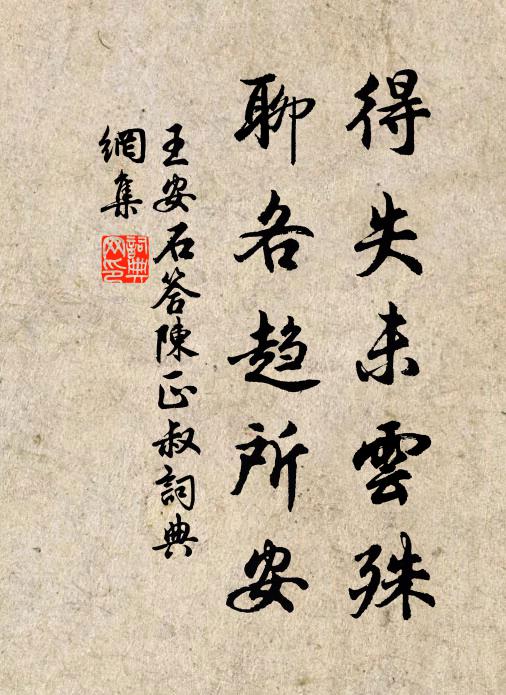 得失未雲殊
聊各趋所安
王安石答陳正叔詞典
網集
詞典
网印